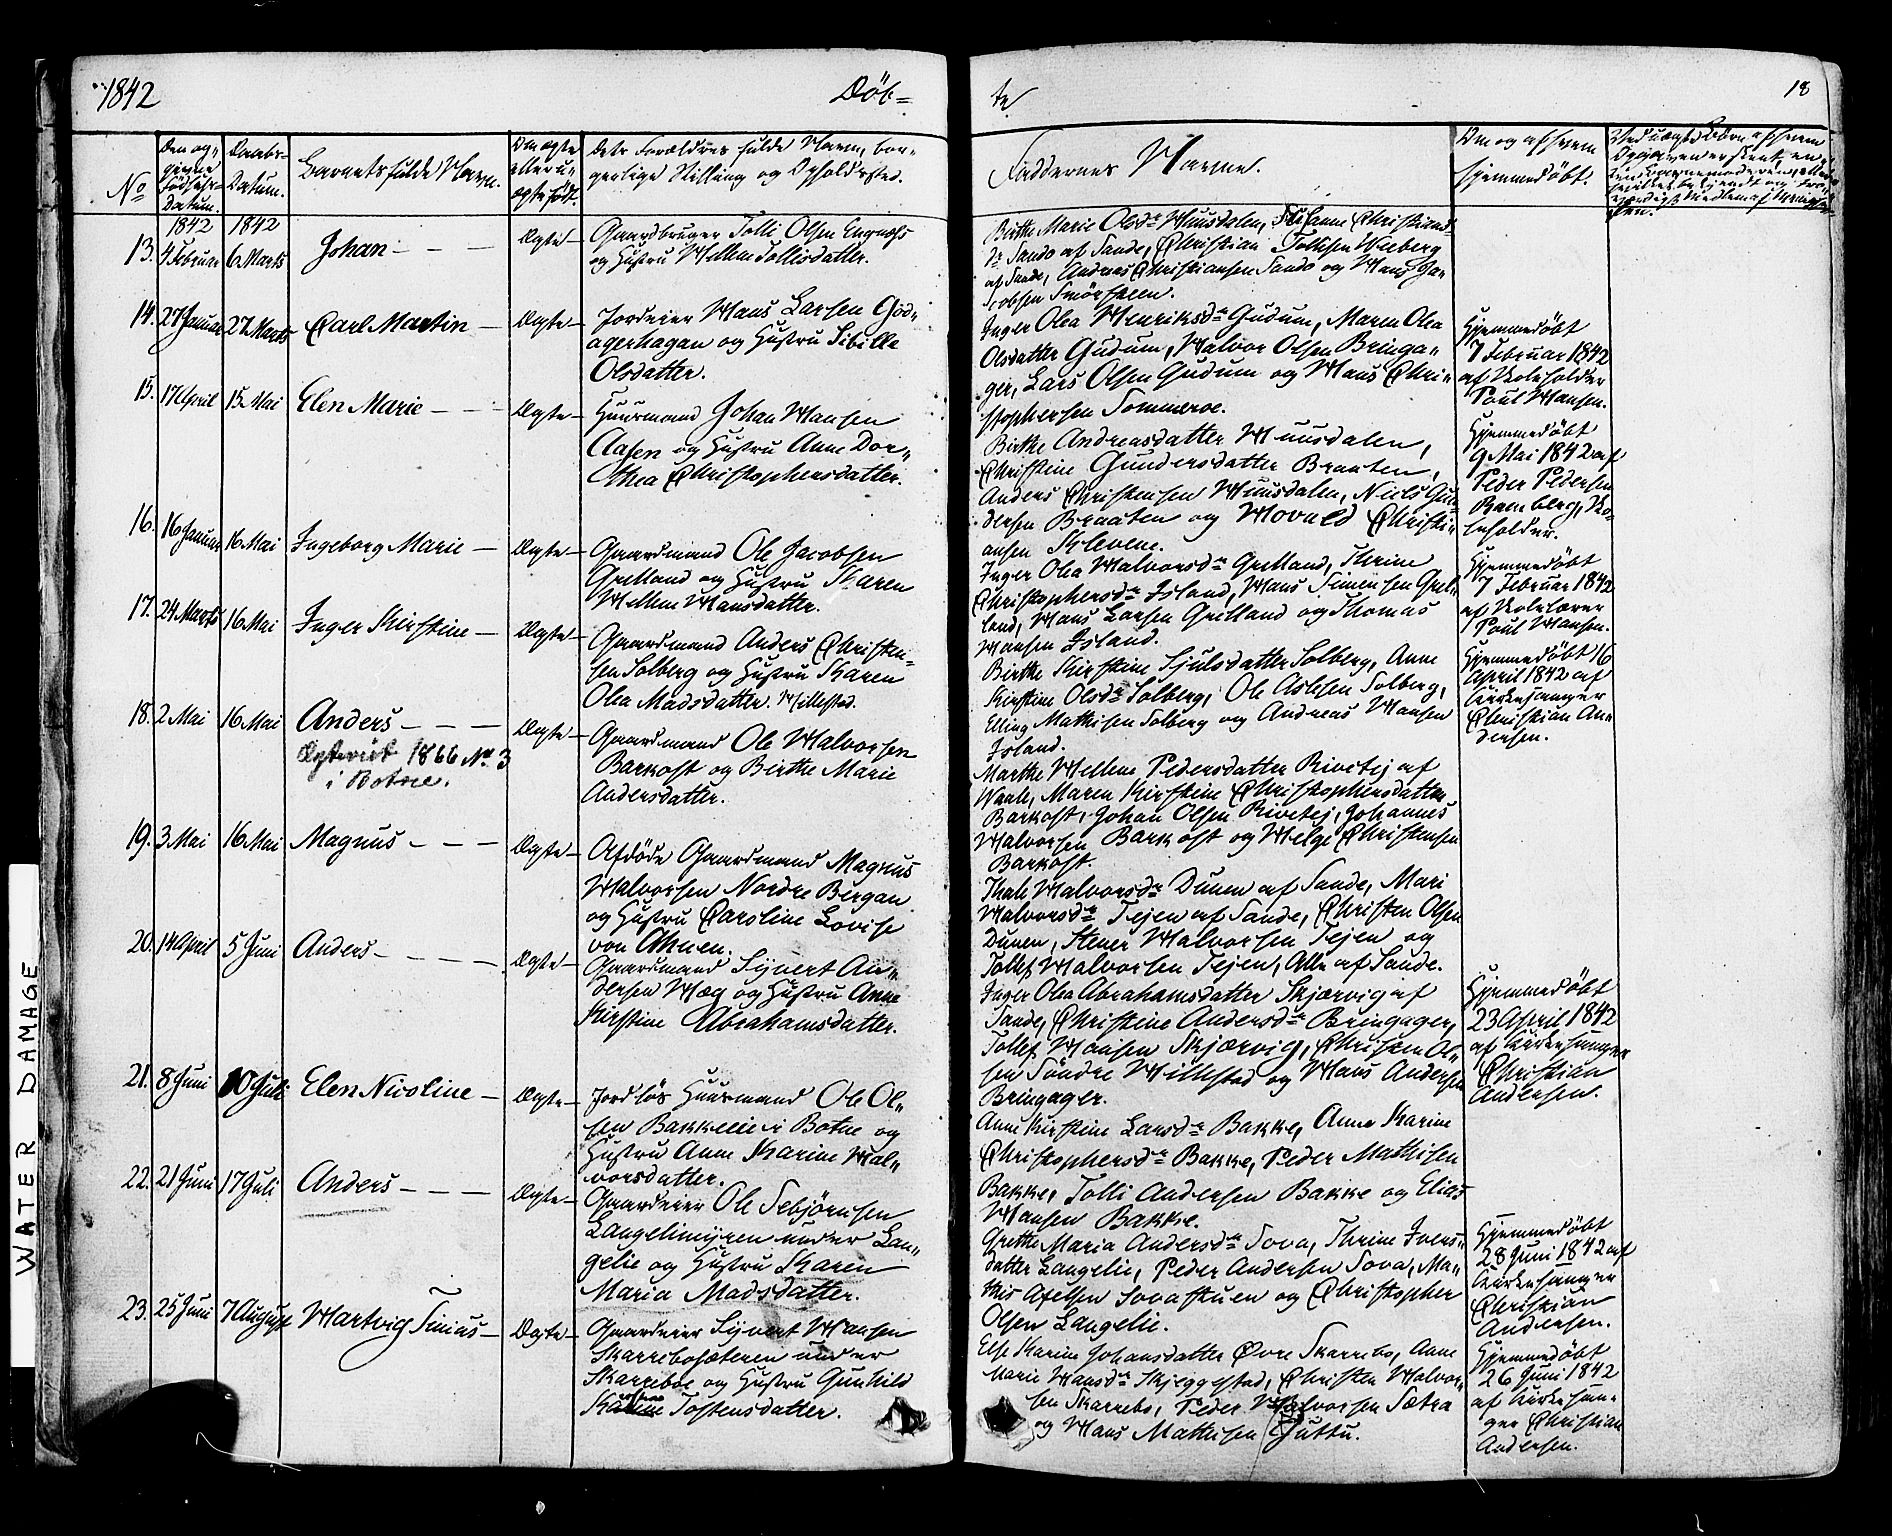 1842
Döb=
te
18
No
Den op=
givne
Födsels=
Datum.
Daabs=
Datum.
Barnets fulde Navn.
Om ægte
eller u=
ægte født.
Dets Forældres fulde Navn, bor=
gerlige Stilling og Opholdssted.
Faddernes Navne.
Om og af hvem
hjemmedøbt.
1842 1842
13. 4 Februar 6 Marts Johan — — —
Ægte
Gaardbruger Tolli Olsen
og Hustru Hellene Tollisdatter.
Birthe Marie Olsdr Huusdalen, Christians=
dr Sando af Sande, Christian Tollefsen Wieberg
af Sande, Andreas Christiansen Sando og Hans Ja=
cobsen Smörsteen.
14. 27 Januar 27 Marts Carl Martin —
Ægte —
Jordeier Hans Larsen God=
agerhagan og Hustru Sibille
Olsdatter.
Inger Olea Henriksdr Gudum, Maren Olea
Olsdatter Gudum, Halvor Olsen Bringa=
ger, Lars Olsen Gudum og Hans Chri=
stophersen Sommeroe.
Hjemmedøbt
7 Februar 1842
af Skoleholder
Poul Hansen.
15. 17 April 15 Mai Elen Marie — — —
Ægte —
Huusmand Johan Hansen
Aasen og Hustru Anne Dor=
thea Christophersdatter.
Birthe Andreasdatter Huusdalen,
Christine Gundersdatter Braaten,
Anders Christensen Huusdalen, Niels Gun=
dersen Braaten og Hovald Christi=
ansen Klevene.
Hjemmedøbt
9 Mai 1842 af
Peder Pedersen
Ramberg, Sko=
leholder.
16. 16 Januar 16 Mai Ingeborg Marie —
Ægte —
Gaardmand Ole Jacobsen
Grelland og Hustru Karen
Hellene Hansdatter.
Inger Olea Halvorsdr Grelland, Thrine
Christophersdr Island, Hans Simensen Grel=
land, Hans Larsen Grelland og Thomas
Hansen Island.
Hjemmedøbt
7 Februar 1842
af Skolelærer
Poul Hansen.
17. 24 Marts 16 Mai Inger Kirstine —
Ægte —
Gaardmand Anders Christen=
sen Solberg og Hustru Karen
Olea Madsdatter. Hillestad.
Birthe Kirstine Sjulsdatter Solberg, Anne
Kirstine Olsdr Solberg, Ole Aslesen Solberg,
Elling Mathisen Solberg og Andreas Hansen
Island.
Hjemmedøbt 16
April 1842 af
Kirkesanger
Christian An=
dersen.
18. 2 Mai 16 Mai Anders — — —
1866 No 3
i Botne.
Ægte —
Gaardmand Ole Halvorsen
Barkost og Birthe Marie
Andersdatter.
Marthe Hellene Pedersdatter Rivetej af
Waale, Maren Kirstine Christophersdatter
Barkost, Johan Olsen Rivetej, Johannes
Halvorsen Barkost og Helge Christensen
Barkost.
19. 3 Mai 16 Mai Magnus — — —
Ægte —
Afdöde Gaardmand Magnus
Halvorsen Nordre Bergan
og Hustru Caroline Lovise
von Ahnen.
Thale Halvorsdr Dunen af Sande, Mari
Halvorsdr Tejen af Sande, Christen Olsen
Dunen, Stener Halvorsen Tejen og
Tollef Halvorsen Tejen, Alle af Sande.
20. 14 April 5 Juni Anders — — — —
Ægte —
Gaardmand Syvert An=
dersen Hæg og Hustru Anne
Kirstine Abrahamsdatter.
Inger Olea Abrahamsdatter Skjærvig af
Sande, Christine Andersdr Bringager,
Tollef Hansen Skjærvig, Christen Ol=
sen Söndre Hillestad og Hans Andersen
Bringager.
Hjemmedøbt
23 April 1842
af Kirkesanger
Christian
Andersen.
21. 8 Juni 10 Juli Elen Nicoline —
Ægte —
Jordlös Huusmand Ole Ol=
sen Bakkeeie i Botne og
Hustru Anne Karine Hal=
vorsdatter.
Anne Kirstine Larsdr Bakke, Anne Karine
Christophersdr Bakke, Peder Mathisen
Bakke, Tolli Andersen Bakke og Elias
Hansen Bakke.
22. 21 Juni 17 Juli Anders — — —
Ægte —
Gaardeier Ole Sebjörnsen
Langelimyren under Lan=
gelie og Hustru Karen
Maria Madsdatter.
Grethe Maria Andersdr Sova, Thrine Ivers=
datter Langelie, Peder Andersen Sova, Ma=
this Axelsen Sovastuen og Christopher
Olsen Langelie.
Hjemmedøbt
28 Juni 1842 af
Kirkesanger
Christian
Andersen.
23. 25 Juni 7 August Hartvig Tinius —
Ægte —
Gaardeier Syvert Hansen
Skarrebosæteren under
Skarreboe og Hustru Gunhild
Karine Tostensdatter.
Else Karine Johansdatter Øvre Skarrebo, Anne
Marie Hansdr Skjeggestad, Christen Halvor=
sen Skarrebo, Peder Halvorsen Sætra
og Hans Mathisen Guttu.
Hjemmedøbt
26 Juni 1842
af Kirkesan=
ger Christian
Andersen.
WATER DAMAGE